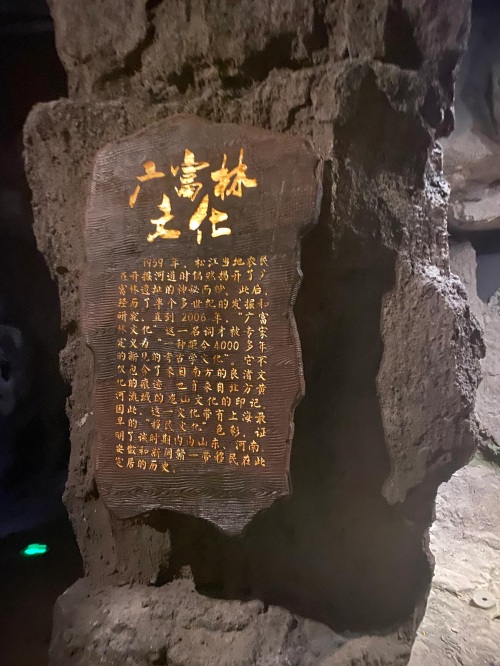 广富林
文化
1959年,松江当地农民
在开掘河道时偶然揭开了广
富林遗址的神秘面纱。此后,
经历了半个多世纪的发掘和
研究,直到2006年,“广富
林文化”这一名词才被专家
定义为“一种距今4000多年
的新见的考古学文化”。它不
仅包含了来自南方的良渚文
化的痕迹,也有来自北方黄
河流域的龙山文化的印记。
因此,这一文化带有上海最
早的“移民文化”色彩,证
明了该时期内向山东、河南、
安徽和新闻前一带移民在此
定居的历史。